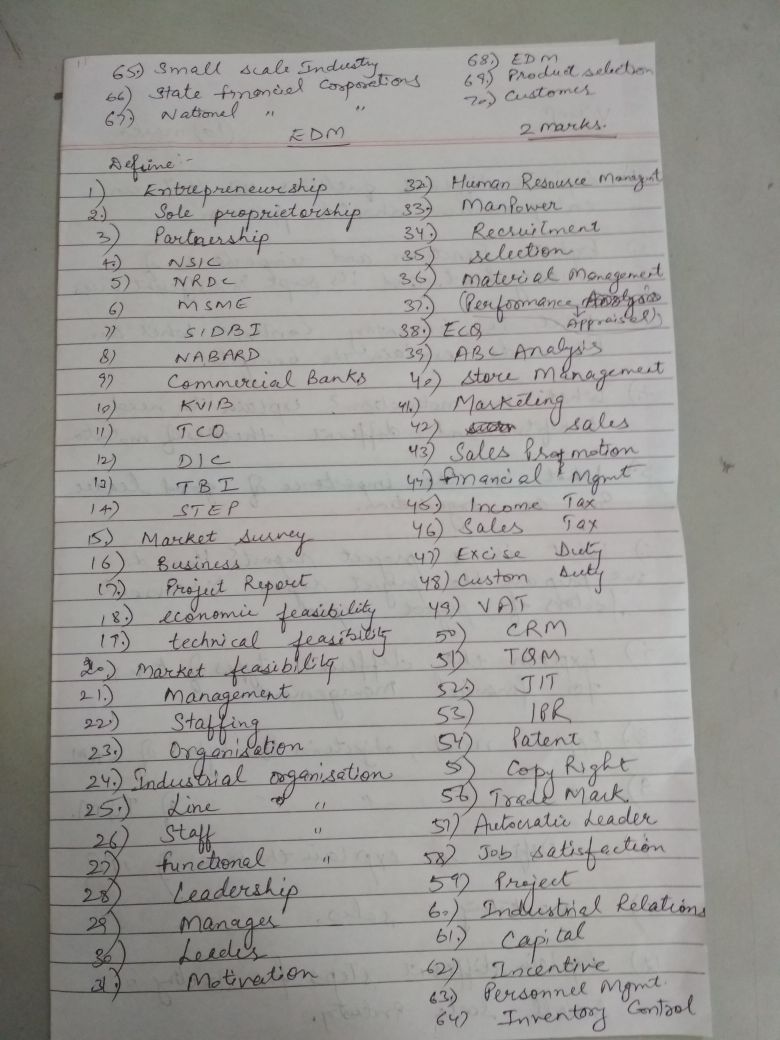 65.) Small scale Industry
66) State financial Corporations
67.) National " "
68.) EDM
69.) Product selection
70.) Customer
EDM
2 marks.
Define :-
1) Entrepreneurship
2.) Sole proprietorship
3) Partnership
4.) NSIC
5) NRDC
6) MSME
7) SIDBI
8) NABARD
9) Commercial Banks
10) KVIB
11) TCO
12) DIC
13) TBI
14) STEP
15.) Market Survey
16) Business
17.) Project Report
18.) economic feasibility
19.) technical feasibility
20.) Market feasibility
21.) Management
22.) Staffing
23.) Organisation
24.) Industrial organisation
25.) Line "
26) Staff "
27) functional "
28) Leadership
29) Manager
30) Leader
31.) Motivation
32.) Human Resource Managmt
33.) ManPower
34.) Recruitment
35) selection
36) Material Management
37.) (Performance Appraisal)
38.) ECQ
39) ABC Analysis
40) Store Management
41.) Marketing
42) sales
43) Sales Promotion
44) financial Mgmt
45.) Income Tax
46) Sales Tax
47) Excise Duty
48) Custom Duty
49) VAT
50) CRM
51) TQM
52.) JIT
53) IPR
54) Patent
5) Copy Right
56) Trade Mark
57) Autocratic Leader
58) Job satisfaction
59) Project
60) Industrial Relations
61.) Capital
62) Incentive
63.) Personnel Mgmt.
64) Inventory Control